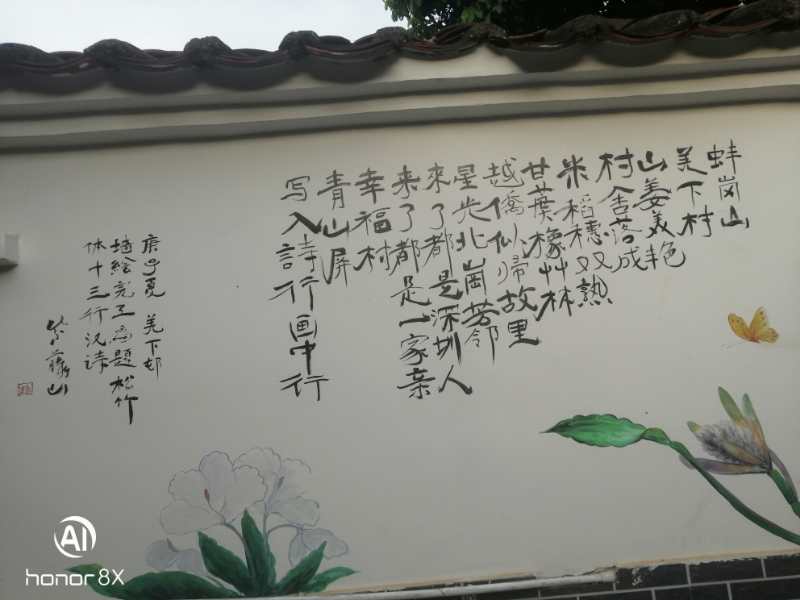 蚌岗山
羌下村
山姜美艳
村舍落成
米稻穗双熟
甘蔗橡艸林
越僑仙归故里
星光北崗芳邻
來了都是深圳人
来了都是一家亲
幸福村
青山屏
写入詩行画中行
庚子夏 羌下邨
墙绘完工为题松竹
体十三行汉诗
紫藤山
AI
honor 8X